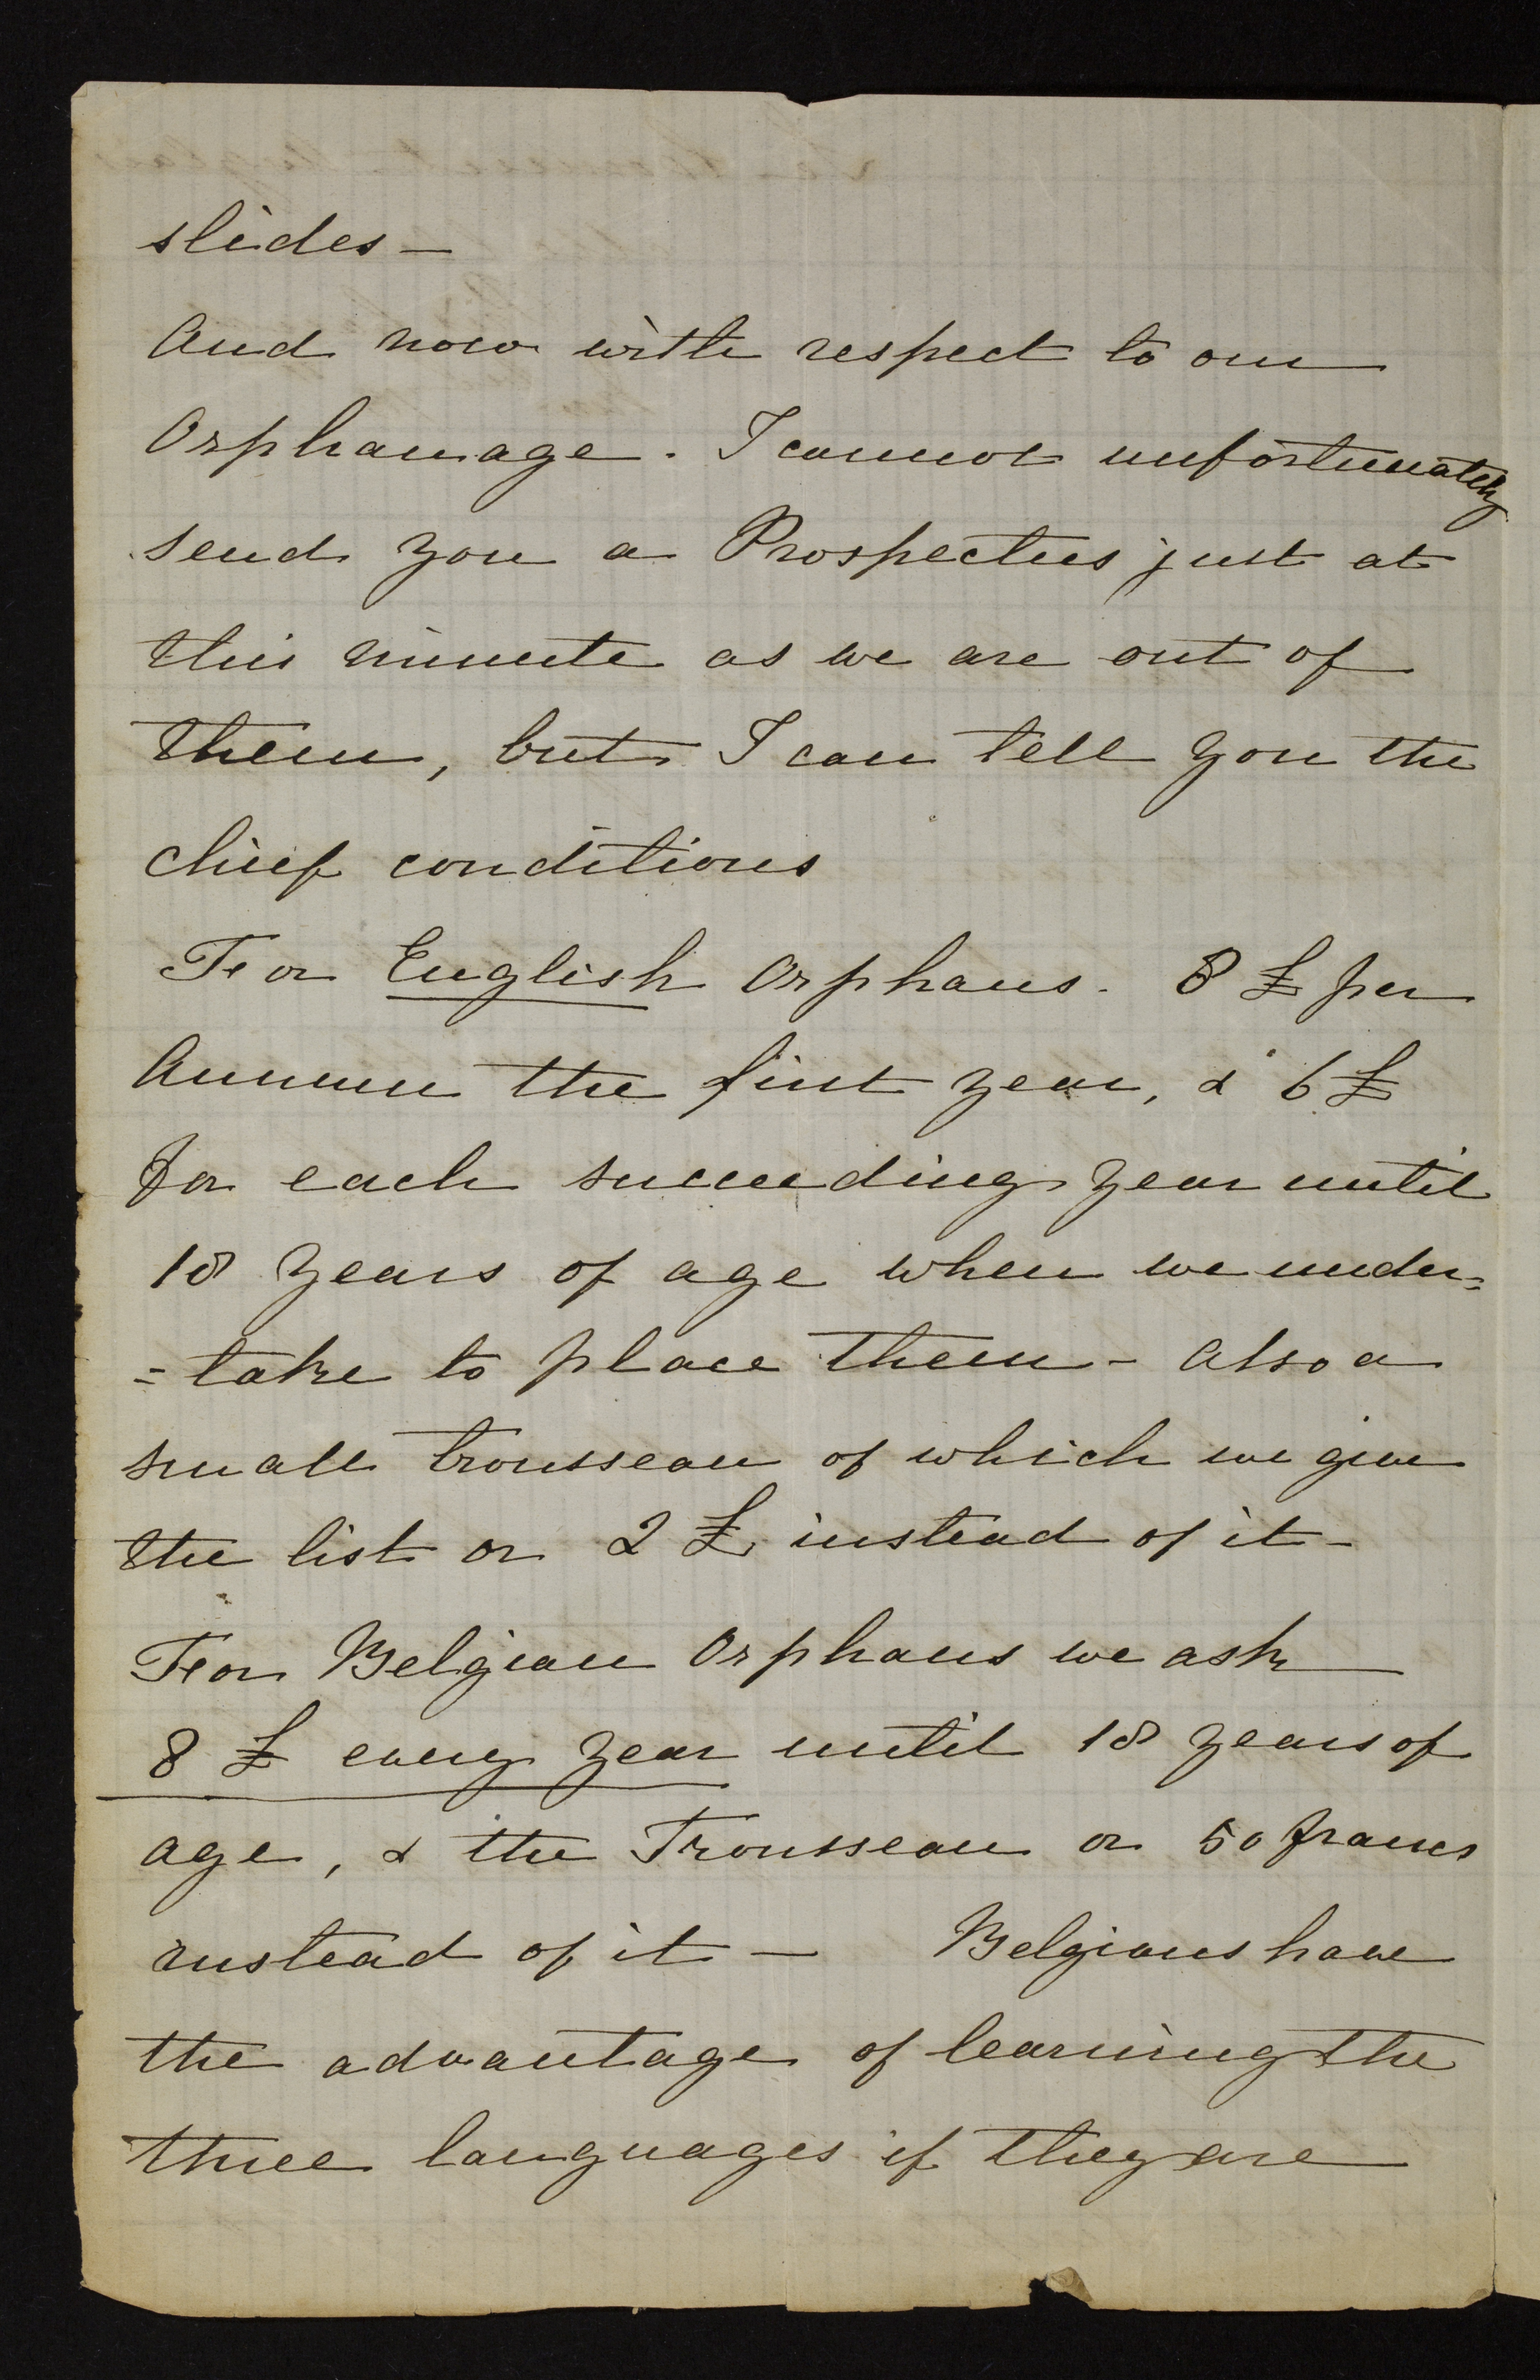 slides —
And now with respect to our
Orphanage. I cannot unfortunately
send you a Prospectus just at
this minute as we are out of
them, but I can tell you the
chief conditions
For English Orphans. 8 £ per
Annum the first year, & 6 £
for each succeeding year until
18 years of age when we under=
=take to place them - Also a
small trousseau of which we give
the list or 2 £ instead of it -
For Belgian Orphans we ask
8 £ every year until 18 years of
age, & the Trousseau or 50 francs
instead of it — Belgians have
the advantage of learning the
three languages if they are